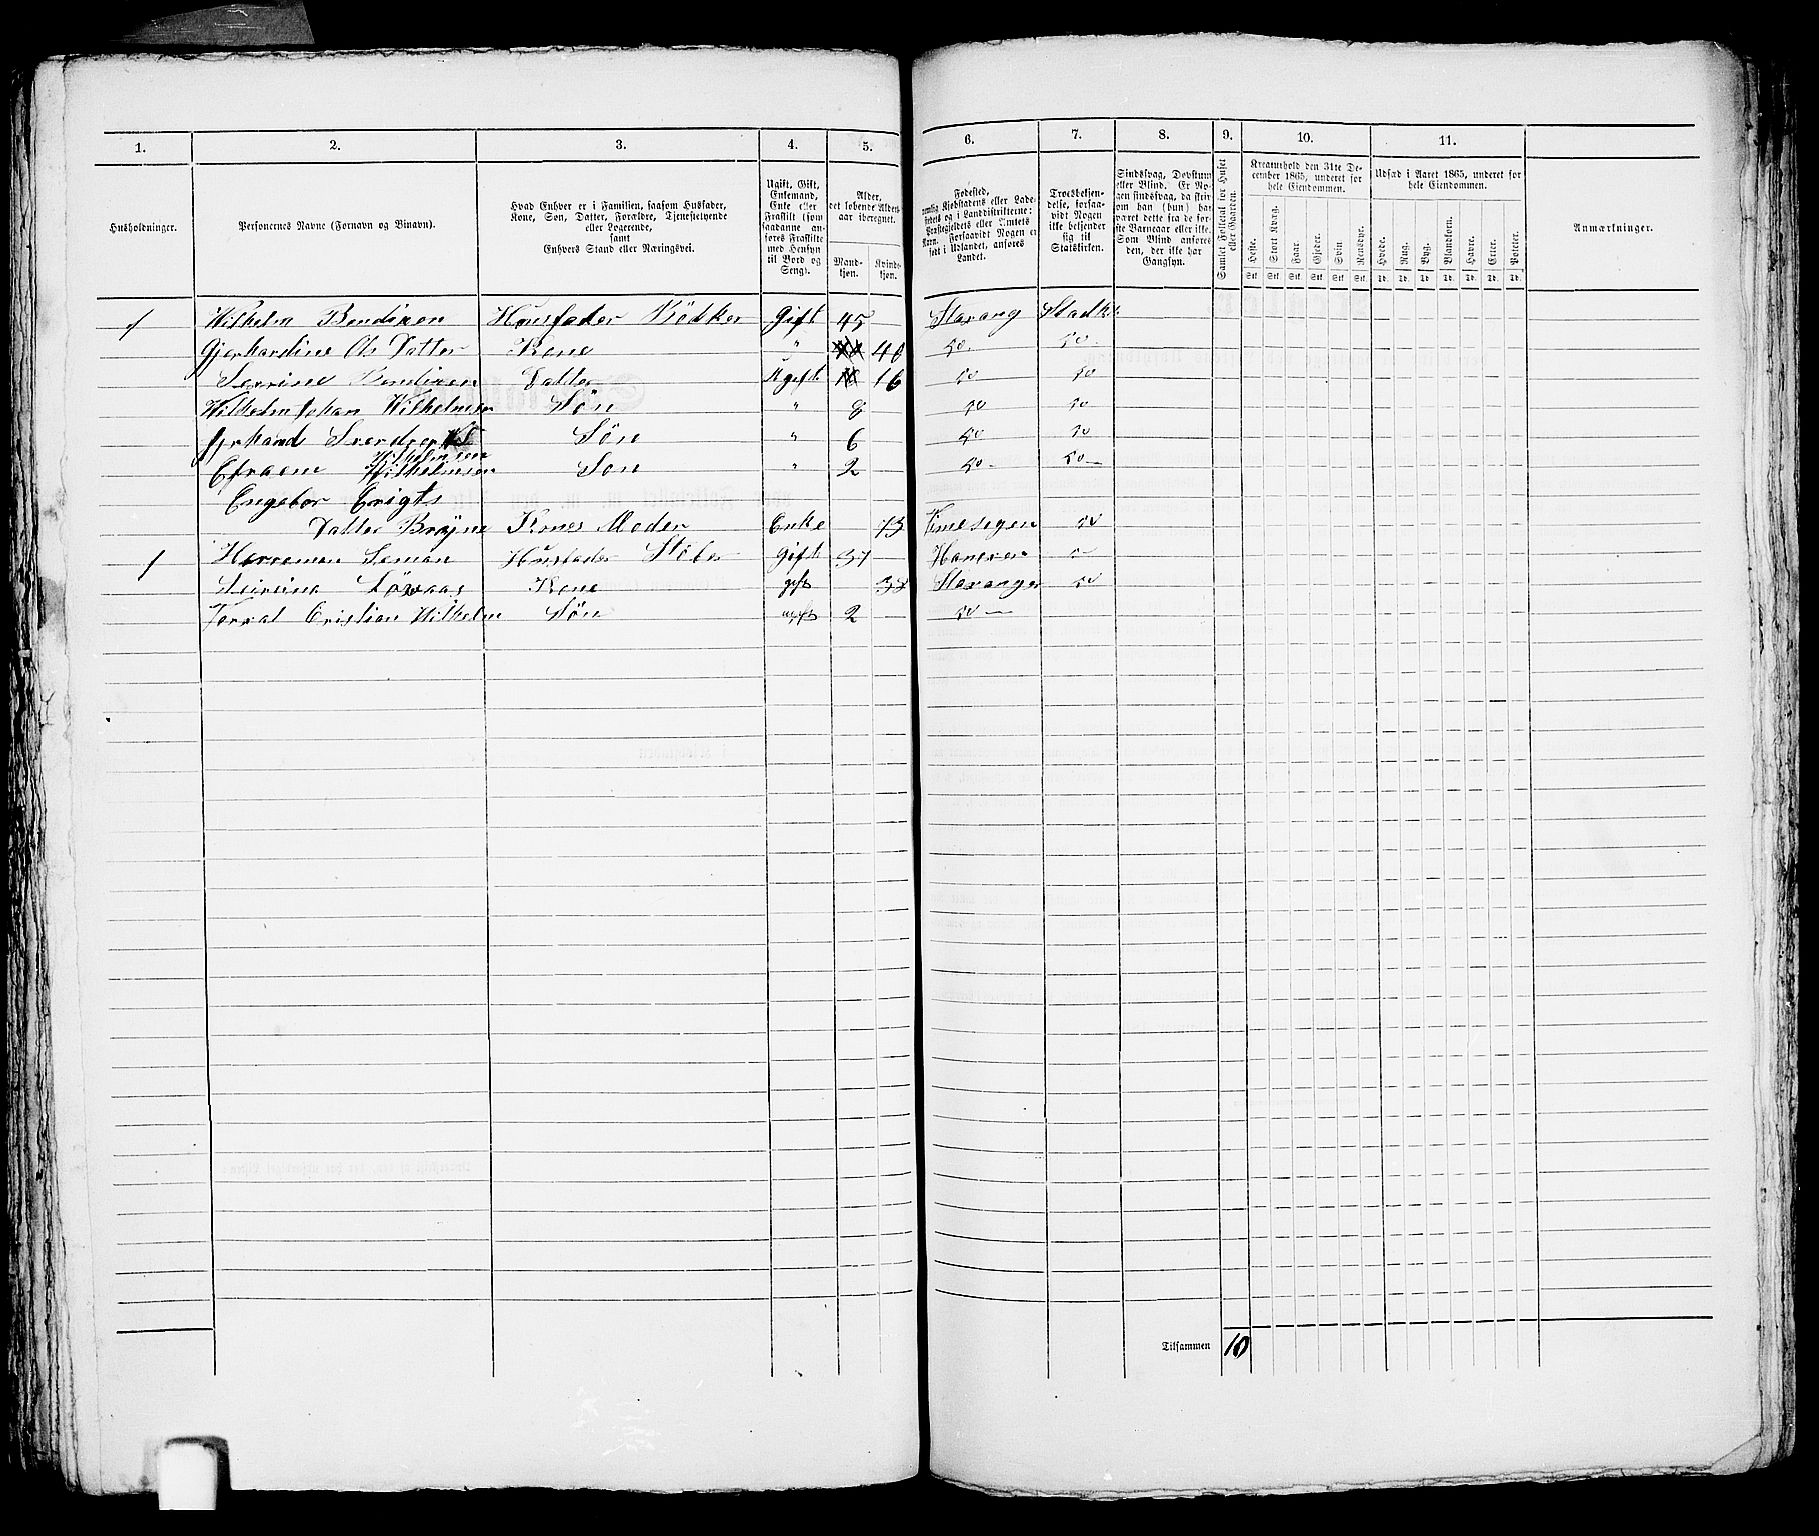 1. 2. 3. 4. 5. 6. 7. 8. 9. 10. 11.
Husholdninger.
Personernes Navne (Fornavn og Binavn).
Hvad Enhver er i Familien, saasom Husfader,
Kone, Søn, Datter, Forældre, Tjenestetyende
eller Logerende,
samt
Enhvers Stand eller Næringsvei.
Ugift, Gift,
Enkemand,
Enke eller
Fraskilt (som
saadanne an-
føres Fraskilte
med Hensyn
til Bord og
Seng).
Alder,
det løbende Alders-
aar iberegnet.
Mand-
kjøn.
Kvind-
kjøn.
Fødested,
nemlig Kjøbstadens eller Lade-
stedets og i Landdistrikterne:
Præstegjeldets eller Amtets
Navn. Forsaavidt Nogen er
født i Udlandet, anføres
Landet.
Troesbekjen-
delse, forsaa-
vidt Nogen
ikke bekjender
sig til
Statskirken.
Sindssvag, Døvstum
eller Blind. Er No-
gen sindssvag, da skri-
ves om han (hun) har
været dette fra de før-
ste Barneaar eller ikke.
Som Blind anføres
den, der ikke har
Gangsyn.
Samlet Folketal for Huset
eller Gaarden.
Kreaturhold den 31te De-
cember 1865, underet for
hele Eiendommen.
Heste. Stort Kvæg. Faar. Gjeder. Svin Rensdyr.
Stk. Stk. Stk. Stk. Stk. Stk.
Udsæd i Aaret 1865, underet for
hele Eiendommen.
Hvede. Rug. Byg. Blandkorn. Havre. Erter. Poteter.
Td. Td. Td. Td. Td. Td. Td.
Anmærkninger.
1 Wilhelm Bendixen Husfader Bödker gift 45 Stavang Stadki
Gjerhardine Ols Datter Kone " 40 do. do.
Serrine Bendixen Datter Ugeft 16 do do
Wilhelm Johan Wilhelmsen Sön " 8 do do
Sön " 6 do do
Efraem Wilhelmsen Wilhelmsen Son " 2 do do
Engebor Erigts
Datter Bryne Kones Moder Enke 73 do
1 Herreman Seman Husfader gift 37 Hanover
Kone geft 38 Stavanger do
Cristian Wilhelm Sön ugeft 2 do
Tilsammen 10